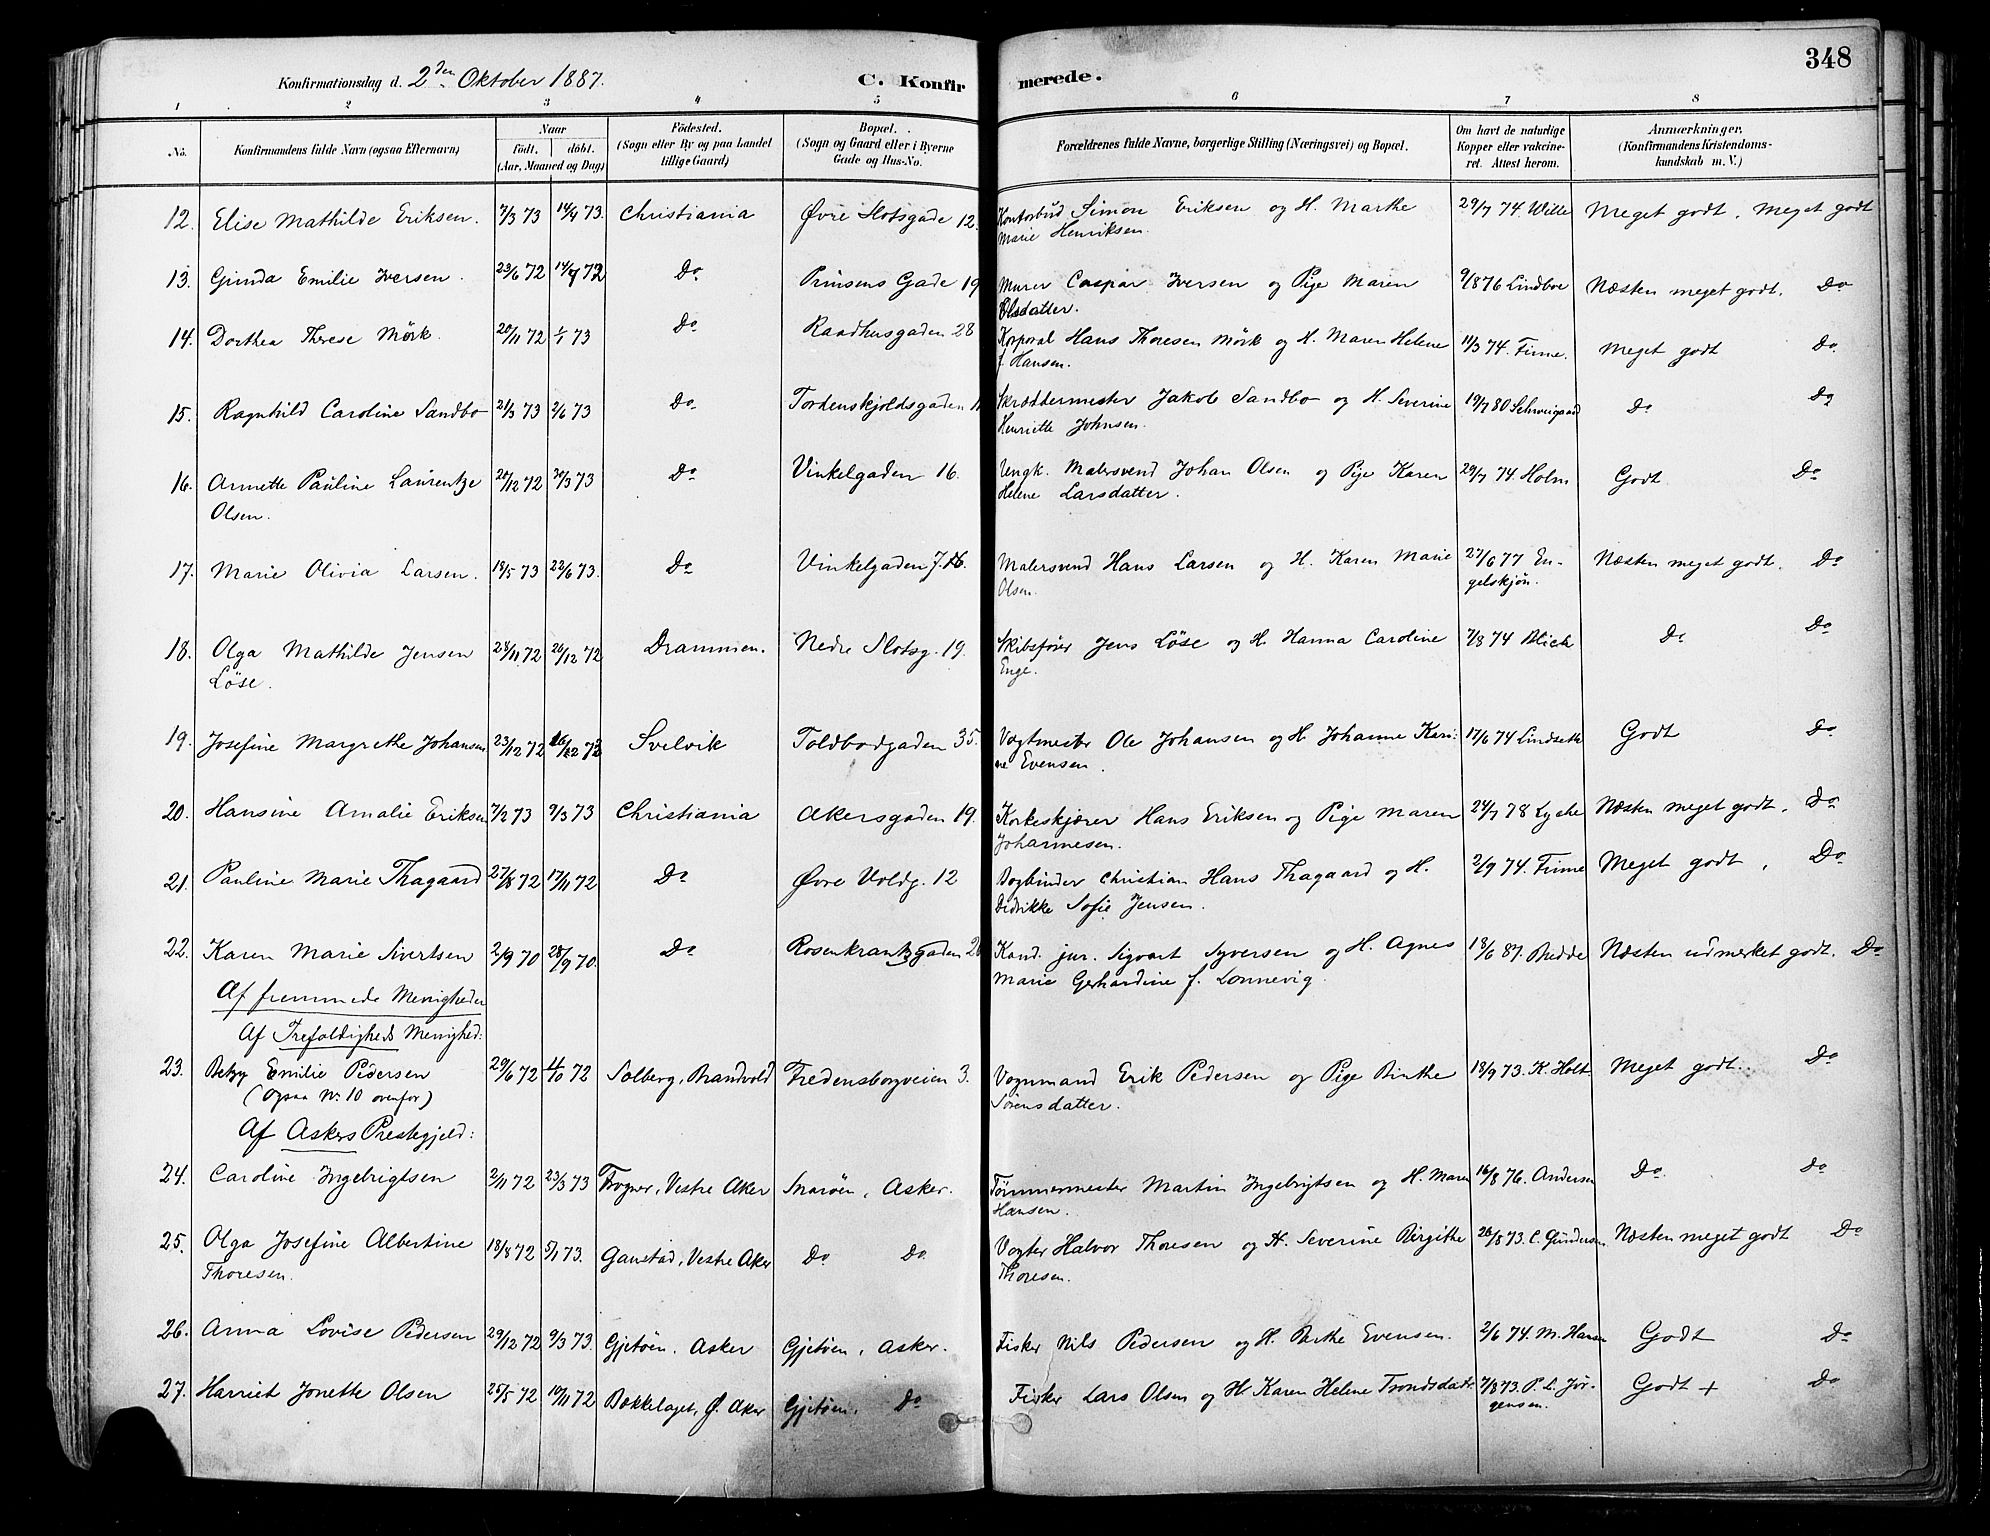 348
Konfirmationsdag d. 2den Oktober 1887. C. Konfir merede.
1 2 3 4 5 6 7 8
No. Konfirmandens fulde Navn (ogsaa Efternavn) Naar født. døbt. (Aar, Maaned og Dag) Fødested. (Sogn eller By og paa Landet tillige Gaard) Bopæl. (Sogn og Gaard eller i Byerne Gade og Hus-No. Forældrenes fulde Navne, borgerlige Stilling (Næringsvei) og Bopæl. Om havt de naturlige Kopper eller vakcineret. Attest herom. Anmærkninger. (Konfirmandens Kristendomskundskab m. V.)
12. Elise Mathilde Eriksen. 7/3 73 14/9 73. Christiania Øvre Slotsgade 12. Kontorbud Simon Eriksen og H. Marthe 29/7 74. Wille Meget godt. Meget godt
Marie Henriksen.
13. Gunda Emilie Iversen. 23/6 72 14/9 72 Do Prinsens Gade 19 Murer Caspar Iversen og Pige Maren 9/8 76 Lindboe Næsten meget godt. Do
Olsdatter.
14. Dorthea Therese Mörk. 20/11 72 1/1 73 Do Raadhusgaden 28 Korporal Hans Thoresen Mörk og H. Maren Helene 11/3 74. Finne. Meget godt Do
f. Hansen.
15. Ragnhild Caroline Sandbo 21/3 73 2/6 73 Do Tordenskjoldsgaden Skræddermester Jakob Sandbo og H. Severine 19/7 80 Schweigaard Do Do
Henriette Johnsen.
16. Annette Pauline Laurentze 20/12 72 30/3 73 Do Vinkelgaden 16. Ungk. Malersvend Johan Olsen og Pige Karen 29/7 74 Holm Godt Do
Olsen. Helene Larsdatter.
17. Marie Olivia Larsen. 18/5 73 22/6 73. Do Vinkelgaden 7. Malersvend Hans Larsen og H. Karen Marie 27/6 77 En- Næsten meget godt. Do
Olsen. gelskjön.
18. Olga Mathilde Jensen 24/11 72 26/12 72 Drammen. Nedre Slotsg. 19. Skibsfører Jens Löse og H. Hanna Caroline 7/8 74 Do Do
Löse. Enge.
19. Josefine Margrethe Johansen 23/12 72 Svelvik Toldbodgaden 35. Vagtmester Ole Johansen og H. Johanne Kari- 17/6 74 Lindseth Godt Do
ne Evensen.
20. Hansine Amalie Eriksen 7/2 73 9/3 73 Christiania Akersgaden 19. Korkeskjærer Hans Eriksen og Pige Maren 24/7 78 Lyche Næsten meget godt. Do
Johannesen.
21. Pauline Marie Thagaard 27/8 72 17/11 72 Do Øvre Voldg. 12 Bogbinder Christian Hans Thagaard og H. 2/9 74. Finne Meget godt. Do
Didrikke Sofie Jensen.
22. Karen Marie Sivertsen 2/9 70 28/9 70. Do Rosenkrantzgaden 20 Kand. jur. Sigvart Syversen og H. Agnes 18/6 87. Bidde Næsten udmerket godt. Do
Marie Gerhardine f. Lonnevig.
Af fremmede Menigheder
Af Trefoldigheds Menighed:
23. Betzy Emilie Pedersen 29/6 72 4/10 72 Solberg, Brandvold Fredensborgveien 3. Vognmand Erik Pedersen og Pige Birthe 18/9 73. K. Holt. Meget godt. Do
(Ogsaa No 10 ovenfor) Sörensdatter.
Af Askers Prestegjeld:
24. Caroline Ingebrigtsen 2/11 72 23/3 73 Frogner, Vestre Aker Snaröen, Asker. Tömmermester Martin Ingebrigtsen og H. Maren 16/8 76. Andersen Do. do
Hansen.
25. Olga Josefine Albertine 18/8 72 5/1 73. Gaustad, Vestre Aker Do Do Vogter Halvor Thoresen og H. Severine Birgithe 26/8 73. C. Gundersen Næsten meget godt Do
Thoresen. Thoresen.
26. Anna Lovise Pedersen 29/12 72 9/3 73. Gjetöen, Asker Gjetöen, Asker. Fisker Nils Pedersen og H. Birthe Evensen. 2/6 74. M. Hansen Godt Do
27. Harriet Jonette Olsen 25/5 72 10/11 72 Bækkelaget, Ø. Aker Gjetöen, Do Fisker Lars Olsen og H. Karen Helene Trondsdatr 7/8 73. P. L. Jör- Godt + Do
gensen.